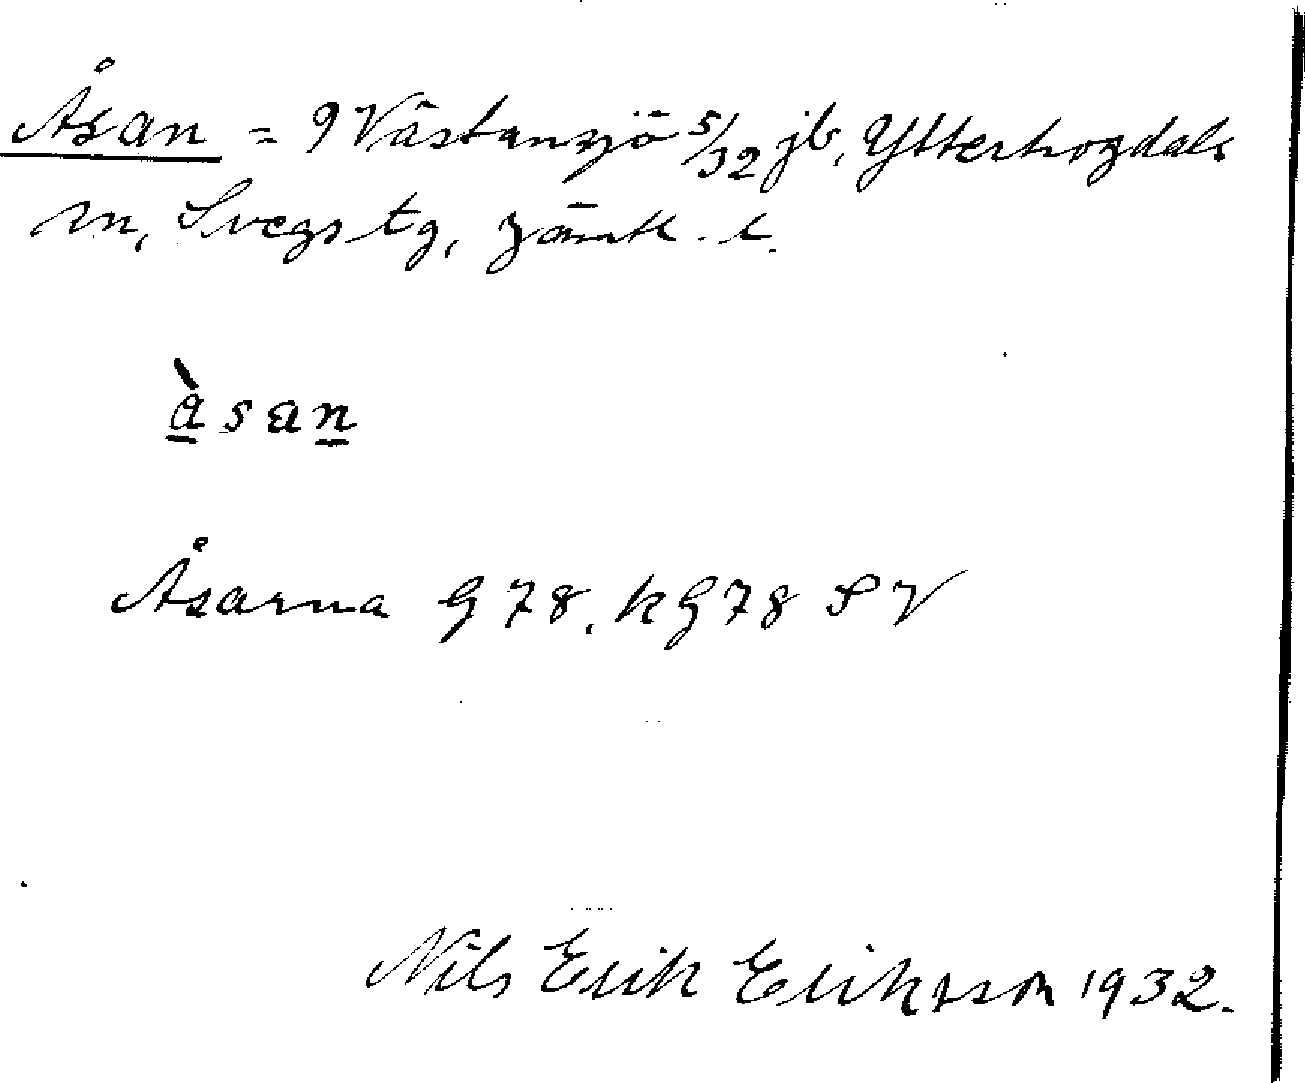 Åsan = 9 Västansjö 5/32 jb, Ytterhogdals
sn, Svegs tg, Jämtl. l.
å̀san
Åsarna G 78. k G 78 S V
Nils Erik Eriksson 1932.